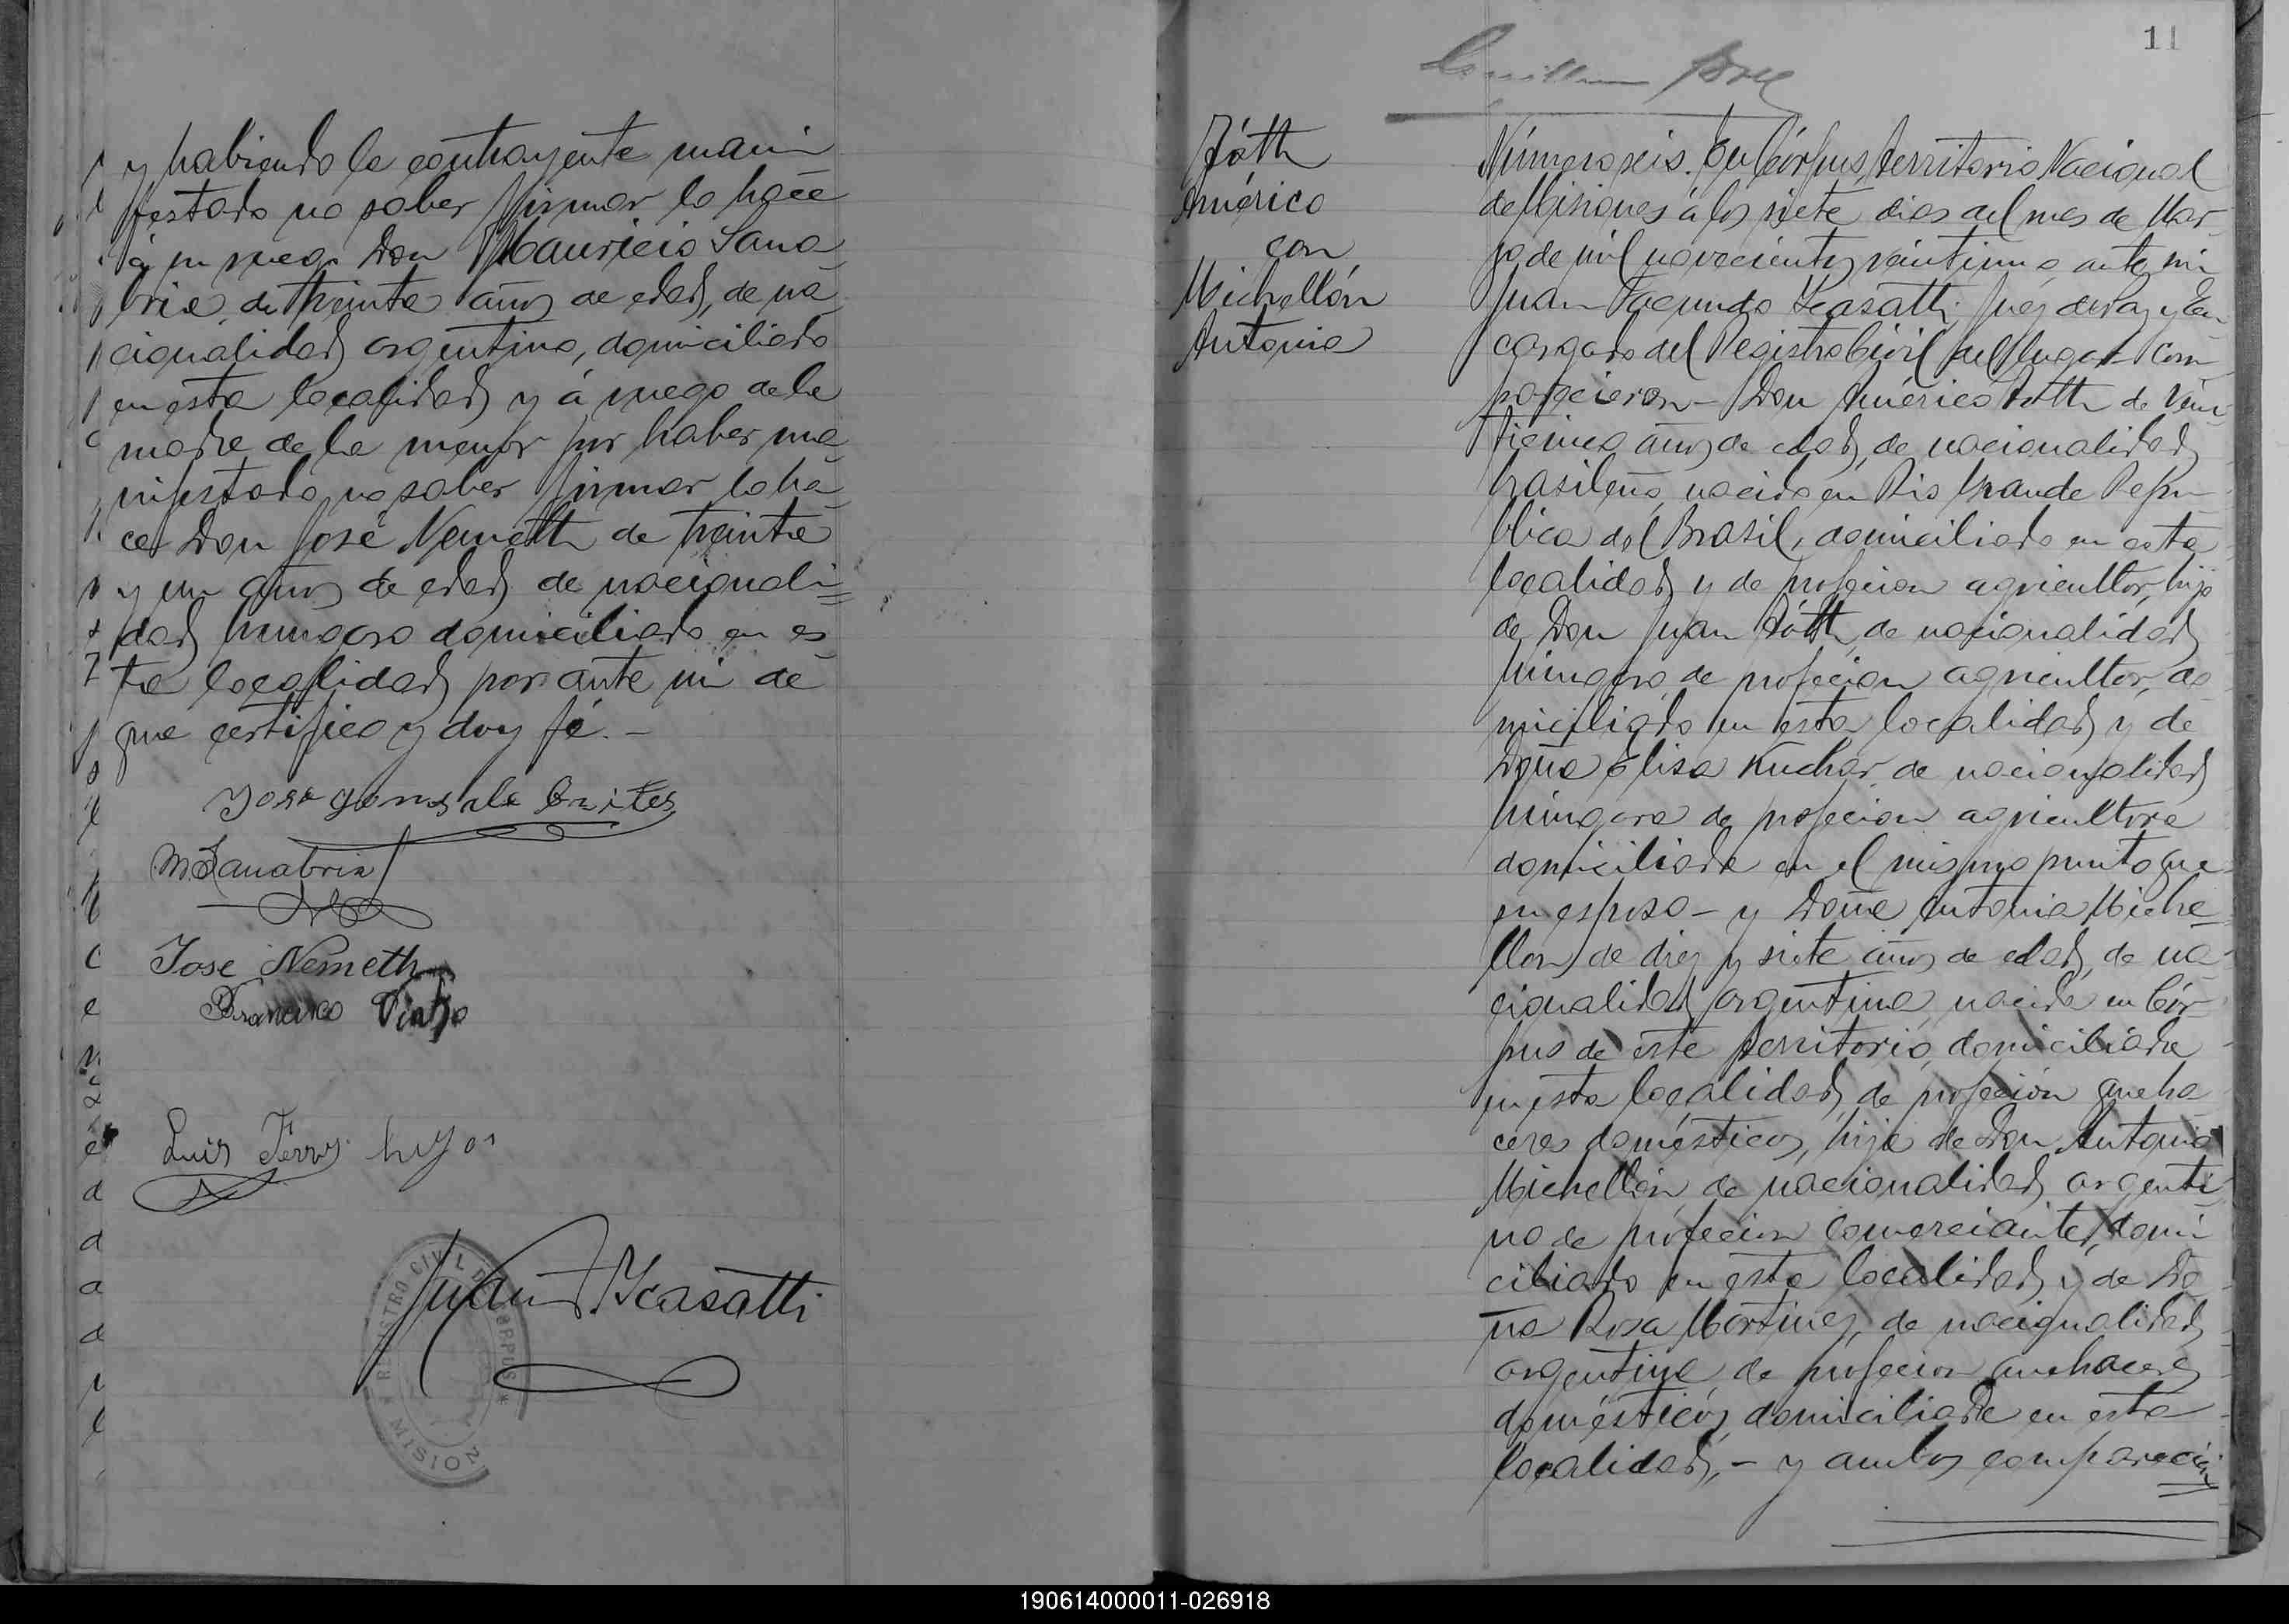 y habiendo la contrayente mani
festado no saber firmar lo hace
á su ruego Don Mauricio Sana
bria, de treinta años de edad, de na
cionalidad argentino, domiciliado
en esta localidad y á ruego de la
madre de la menor por haber ma
nifestado no saber firmar lo ha
ce Don José Nemeth de treinta
y un años de edad de nacionali=
dad húngaro domiciliado en es
ta localidad por ante mi de
que certifico y doy fé.-
M. Sanabria
Jose Nemeth
Francisco
Luis Ferro
Juan F. Scasatti
REGISTRO CIVIL DE CORPUS * MISION
11
Tóth
Américo
con
Michellón
Antonia
Número seis. En Córpus, territorio Nacional
de Misiones á los siete dias del mes de Mar-
zo de mil novecientos veintiuno ante mi
Juan Facundo Scasatti, Juez de Paz y En
cargado del Registro Civil del lugar com
parecieron - Don Américo Tóth de vein
ticinco años de edad, de nacionalidad
brasileño, nacido en Rio Grande Repú
blica del Brasil, domiciliado en esta
localidad y de profecion agricultor, hijo
de Don Juan Tóth, de nacionalidad
húngaro, de profecion agricultor, do
miciliado en esta localidad y de
Doña Elisa Kuchar de nacionalidad
húngara de profecion agricultora
domiciliada en el mismo punto que
su esposo - y Doña Antonia Miche
llon, de diez y siete años de edad, de na
cionalidad argentina, nacida en Cór
pus de este territorio, domiciliada
en esta localidad, de profeción queha
ceres domésticos, hija de Don Antonio
Michellón, de nacionalidad argenti
no de profecion comerciante, domi
ciliado en esta localidad y de Do
ña Rosa Martinez, de nacionalidad
argentina, de profecion quehaceres
domésticos, domiciliada en esta
localidad, - y ambos comparecien
190614000011-026918